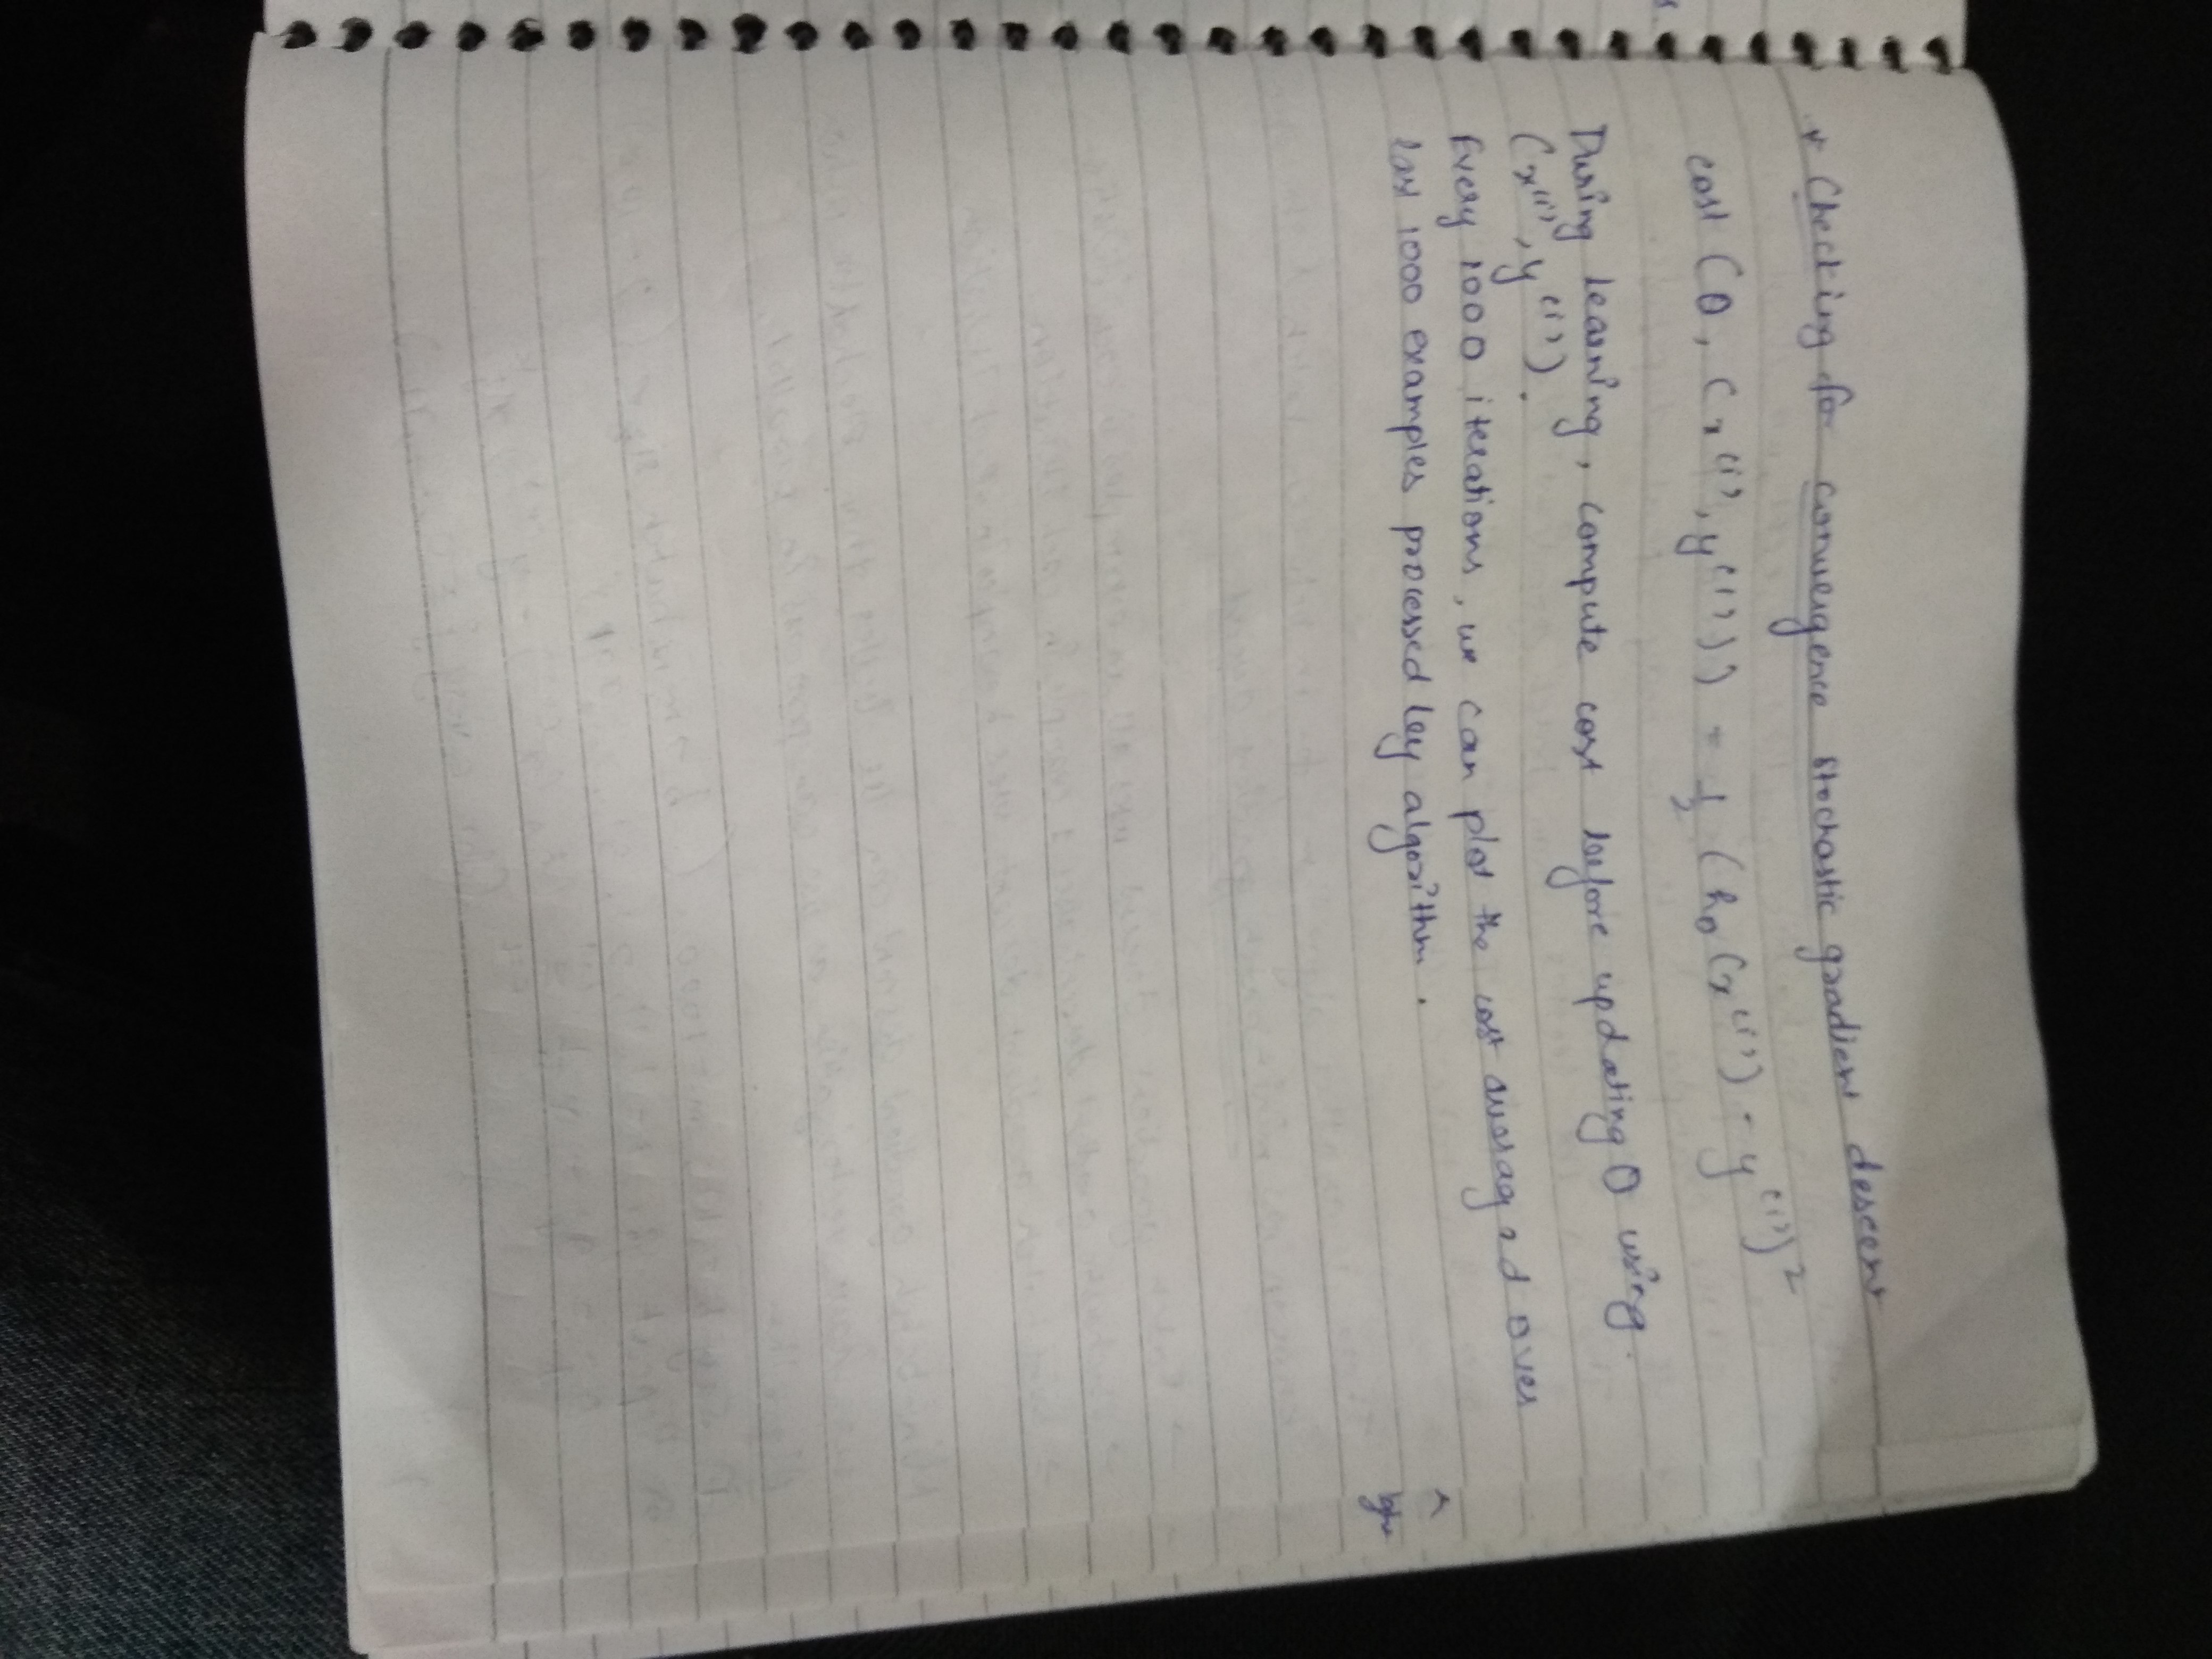 * Checking for convergence stochastic gradient descent
cost (θ, (x⁽ⁱ⁾, y⁽ⁱ⁾)) = 1/2 (hθ(x⁽ⁱ⁾) - y⁽ⁱ⁾)²
During learning, compute cost before updating θ using
(x⁽ⁱ⁾, y⁽ⁱ⁾).
Every 1000 iterations, we can plot the cost averaged over
last 1000 examples processed by algorithm.